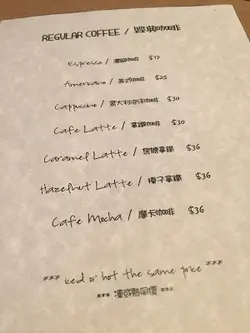 REGULAR COFFEE / 經典咖啡
Espresso / 濃縮咖啡 $17
Americano / 美式咖啡 $25
Cappuccino / 意大利泡沫咖啡 $30
Cafe Latte / 拿鐵咖啡 $30
Caramel Latte / 焦糖拿鐵 $36
Hazelnut Latte / 榛子拿鐵 $36
Cafe Mocha / 摩卡咖啡 $36
*** iced or hot the same price ***
*** 凍或熱同價 ***